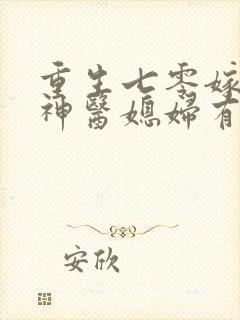 重生七零嫁
神醫媳婦有
安欣